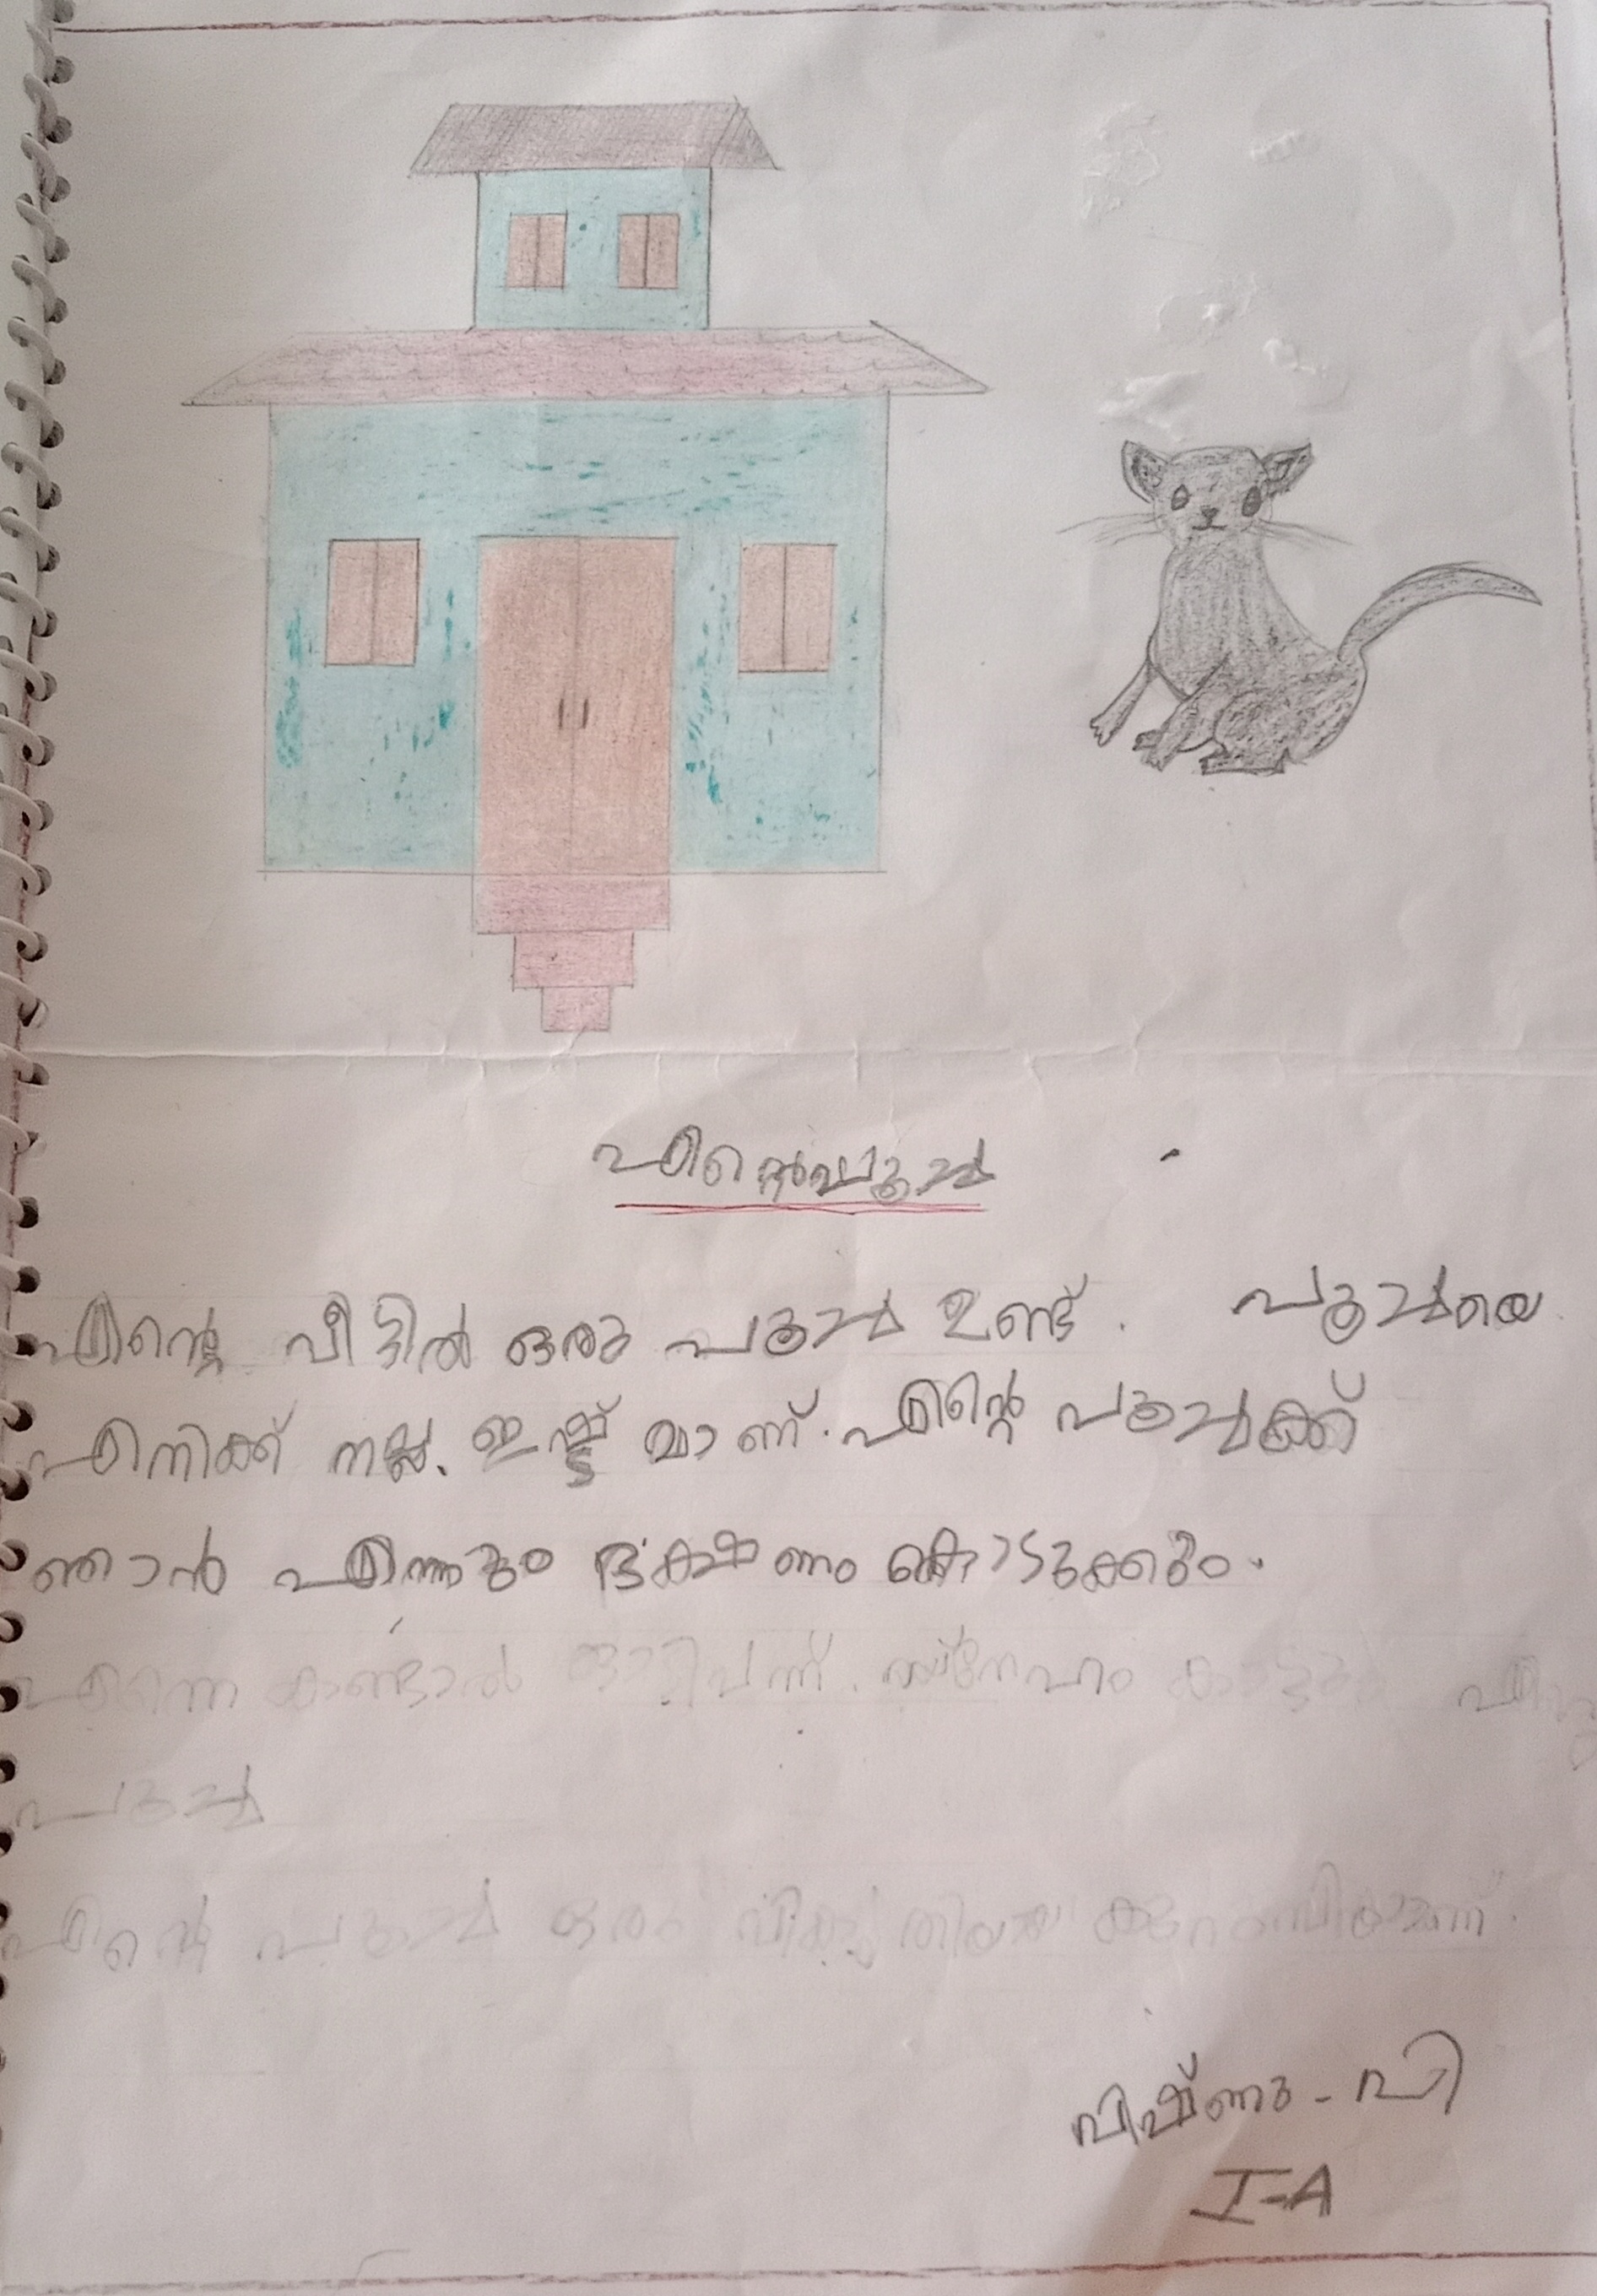 എന്റെപൂച്ച
എന്റെ വീട്ടിൽ ഒരു പൂച്ച ഉണ്ട്. പൂച്ചയെ
എനിക്ക് നല്ല ഇഷ്ട്ട മാണ്. എന്റെ പൂച്ചക്ക്
ഞാൻ എന്നും ഭക്ഷണം കൊടുക്കും.
എന്നെ കണ്ടാൽ
പൂച്ച
എന്റെ പൂച്ച ഒരു
വിഷ്ണു - വി
I-A